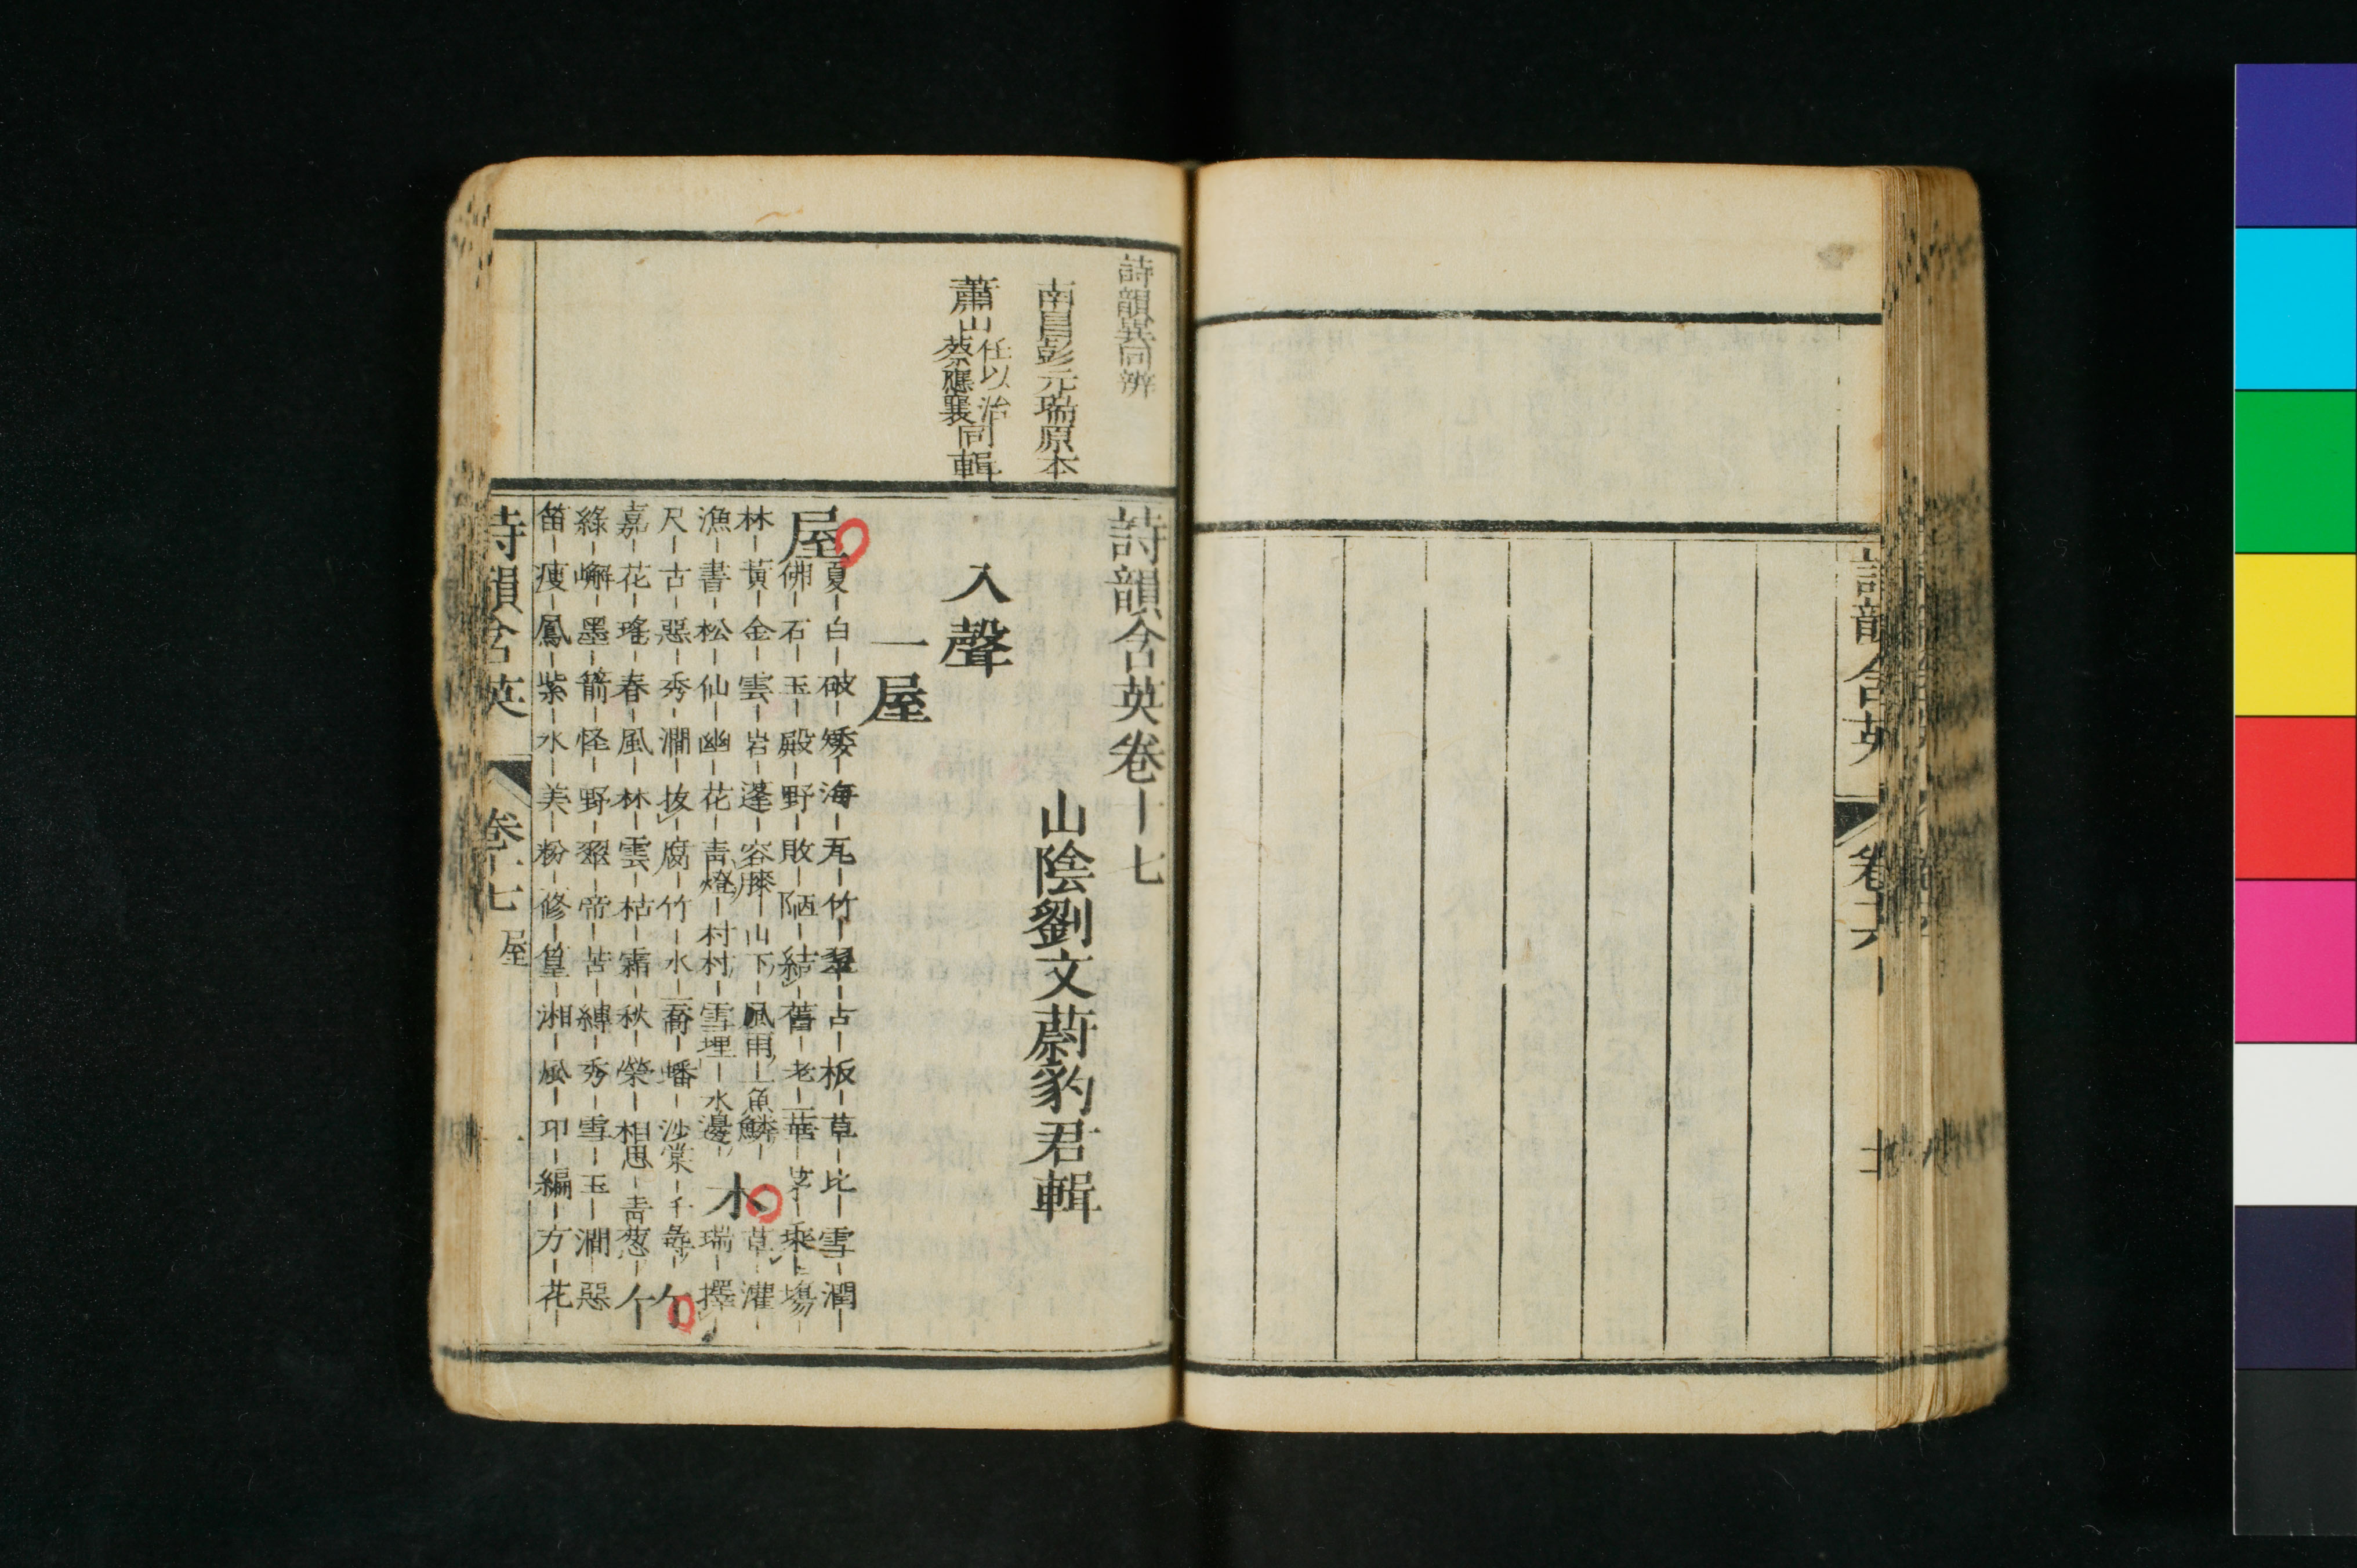 詩韻含英
卷十六
詩韻異同辨
南昌彭元瑞原本
蕭山任以治蔡應襄同輯
詩韻含英卷十七
山陰劉文蔚豹君輯
入聲
一屋
屋夏｜白｜破｜矮｜海｜瓦｜竹｜翠｜古｜板｜草｜比｜雪｜潤｜
佛｜石｜玉｜殿｜野｜敗｜陋｜結｜舊｜老｜華｜茅｜乘｜場｜
林｜黃｜金｜雲｜岩｜蓬｜容膝｜山下｜風雨｜魚鱗｜木草｜灌｜
漁｜書｜松｜仙｜幽｜花｜青燈｜村村｜雪埋｜水邊｜瑞｜擇｜
尺｜古｜惡｜秀｜澗｜拔｜腐｜竹｜水｜喬｜蟠｜沙棠｜千尋｜竹
嘉｜花｜瑤｜春｜風｜林｜雲｜枯｜霜｜秋｜榮｜相思｜青葱｜
綠｜嶰｜墨｜箭｜怪｜野｜翠｜帝｜苦｜縛｜秀｜雪｜玉｜澗｜惡｜
笛｜瘦｜鳳｜紫｜水｜美｜粉｜修｜篁｜湘｜風｜印｜編｜方｜花｜
詩韻含英
卷十七
屋
一